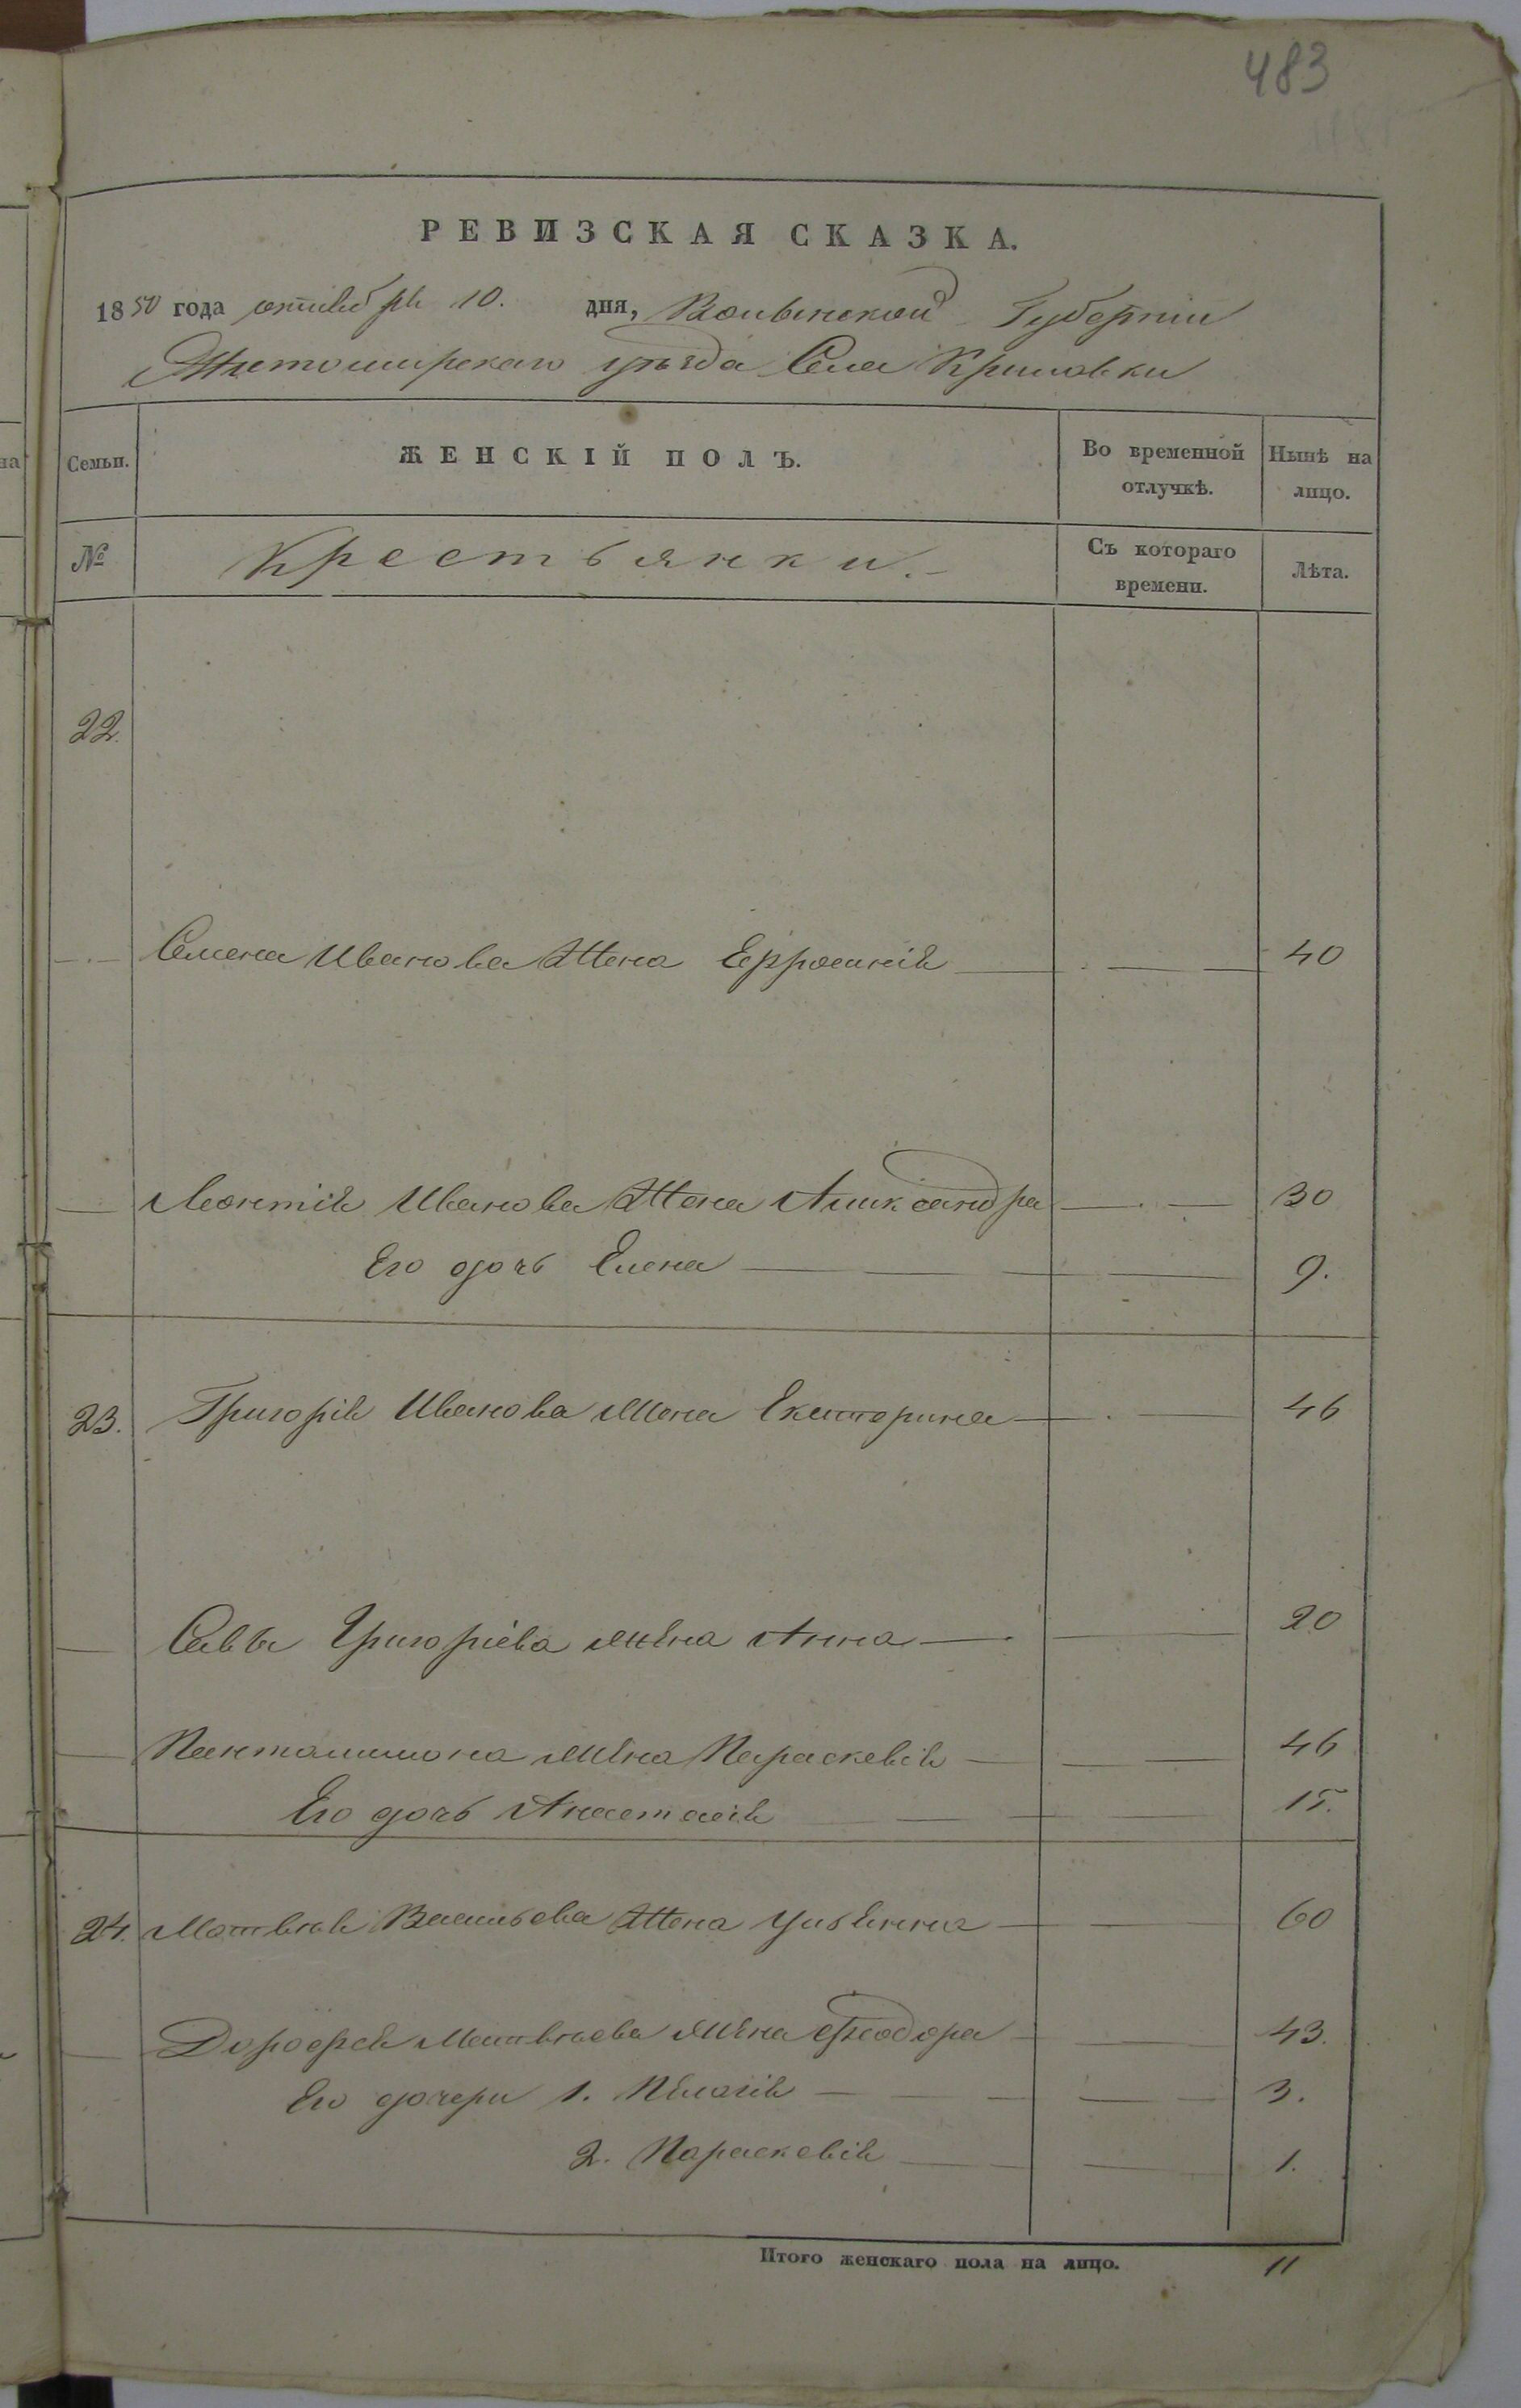 483
РЕВИЗСКАЯ СКАЗКА.
1850 года октября 10. дня, Волынской Губерніи
Житомирскаго уѣзда Села Крыловки
Семьи. ЖЕНСКІЙ ПОЛЪ. Во временной отлучкѣ. Нынѣ на лицо.
№ Крестьянки. Съ котораго времени. Лѣта.
22.
Семена Иванова Жена Ефросинія 40
Леонтія Иванова Жена Александра 30
Его дочь Елена 9.
23. Григорія Иванова жена Екатерина 46
Саввы Григоріева жена Анна 20
Панталимона жена Параскевія 46
Его дочь Анастасія 15.
24. Матвѣя Васильева Жена Ульянна 60
Дорофея Матвѣева жена Феодора 43.
Его дочери 1. Пелагія 3.
2. Параскевія 1.
Итого женскаго пола на лицо. 11